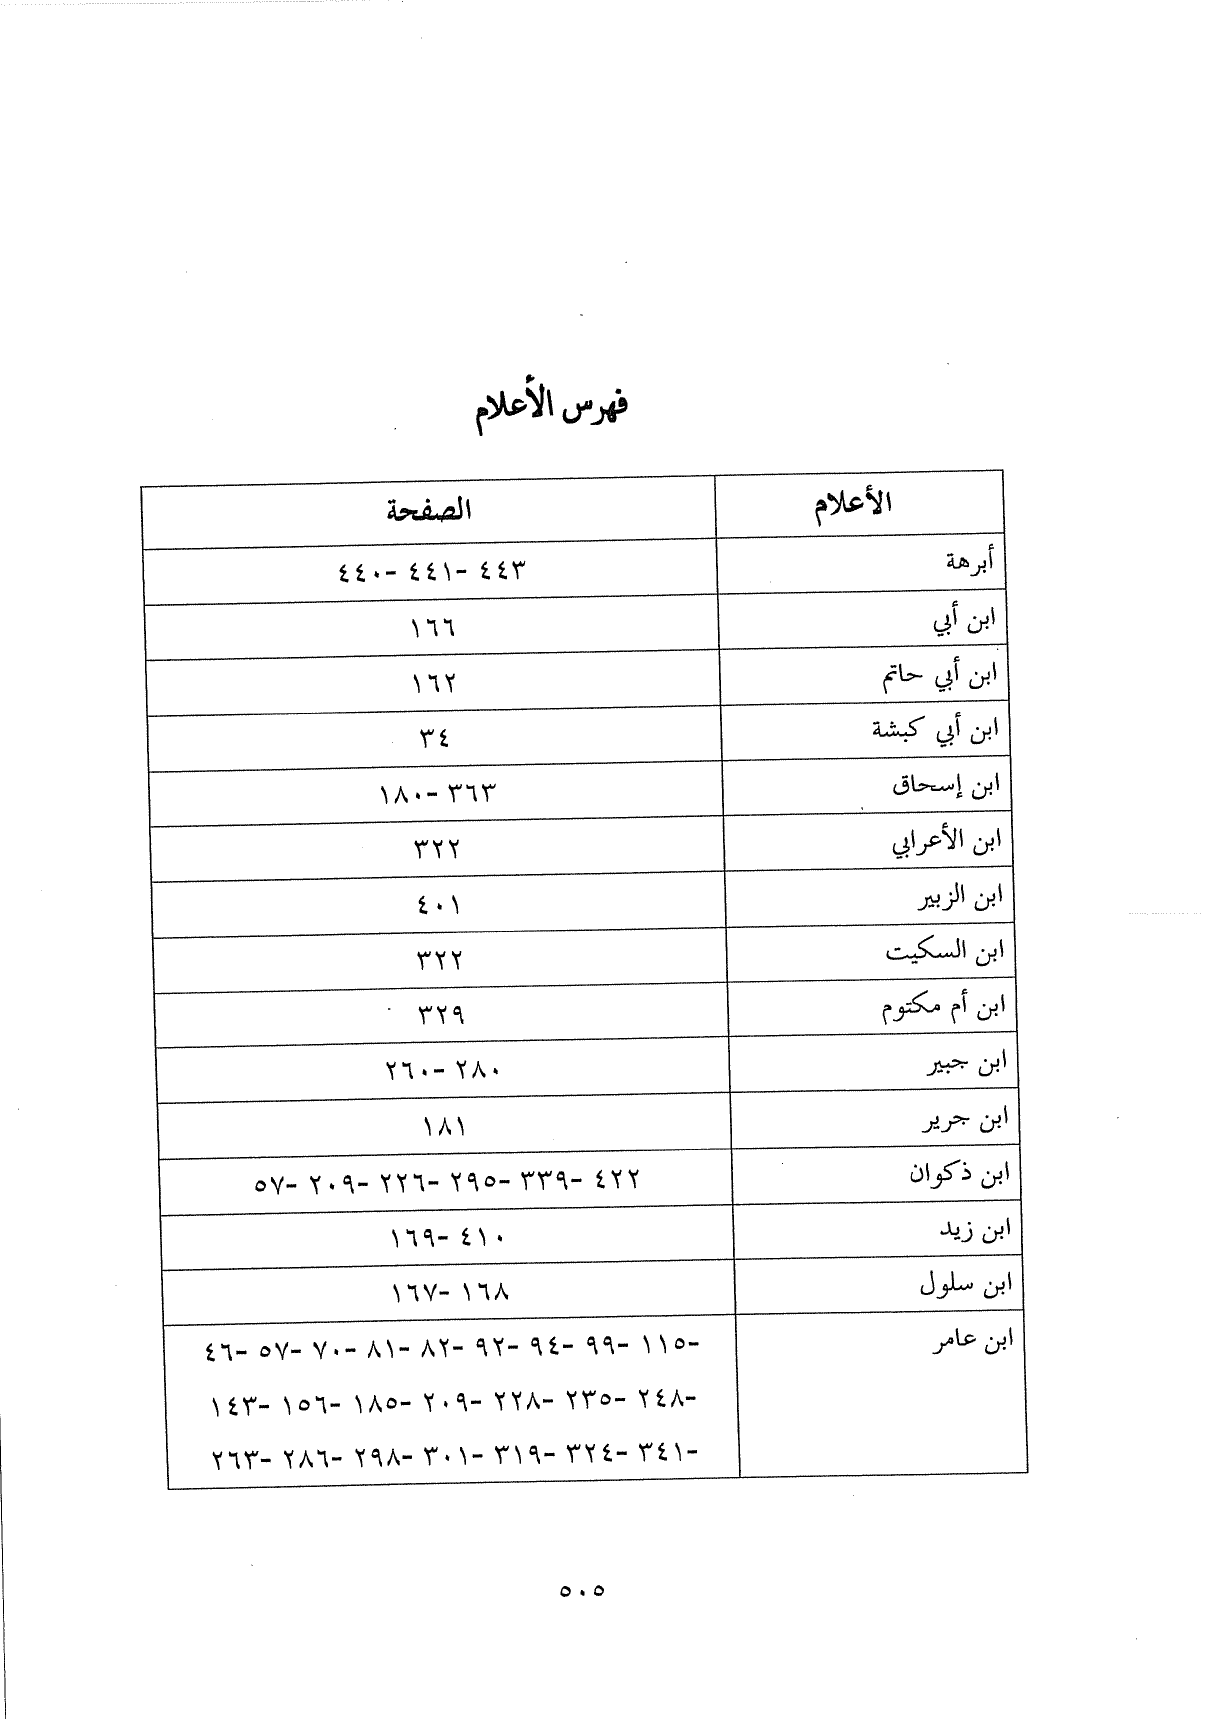 فهرس الأعلام
الأعلام الصفحة
أبرهة ٤٤٠- ٤٤١- ٤٤٣
ابن أبي ١٦٦
ابن أبي حاتم ١٦٢
ابن أبي كبشة ٣٤
ابن إسحاق ١٨٠- ٣٦٣
ابن الأعرابي ٣٢٢
ابن الزبير ٤٠١
ابن السكيت ٣٢٢
ابن أم مكتوم ٣٢٩
ابن جبير ٢٦٠- ٢٨٠
ابن جرير ١٨١
ابن ذكوان ٥٧- ٢٠٩- ٢٢٦- ٢٩٥- ٣٣٩- ٤٢٢
ابن زيد ١٦٩- ٤١٠
ابن سلول ١٦٧- ١٦٨
ابن عامر ٤٦- ٥٧- ٧٠- ٨١- ٨٢- ٩٢- ٩٤- ٩٩- ١١٥-
١٤٣- ١٥٦- ١٨٥- ٢٠٩- ٢٢٨- ٢٣٥- ٢٤٨-
٢٦٣- ٢٨٦- ٢٩٨- ٣٠١- ٣١٩- ٣٢٤- ٣٤١-
٥٠٥